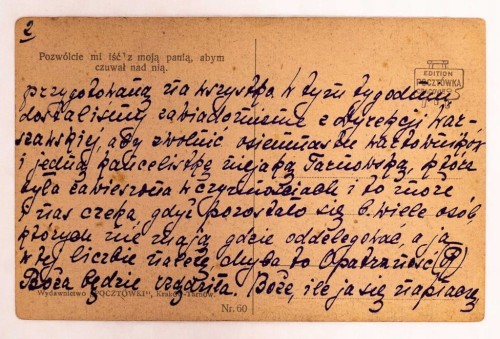 2
Pozwólcie mi iść z moją panią, abym
czuwał nad nią.
EDITION
POCZTÓWKA
przygotowaną na wszystko w tym tygodniu
dostaliśmy zawiadomienie z dyrekcji War-
szawskiej, aby zwolnić osiemnastu wartowników
i jedną kancelistkę niejaką Tarnowską, która
była zawieszona w czynnościach i to może
i nas czeka, gdyż pozostało się b. wiele osób,
których nie mają gdzie oddelegować, a ja
w tej liczbie należę chyba to Opatrzność
Boża będzie rządziła. Boże, ile ja się napłaczę
Wydawnictwo "POCZTÓWKI", Kraków-Tarnów.
Nr. 60